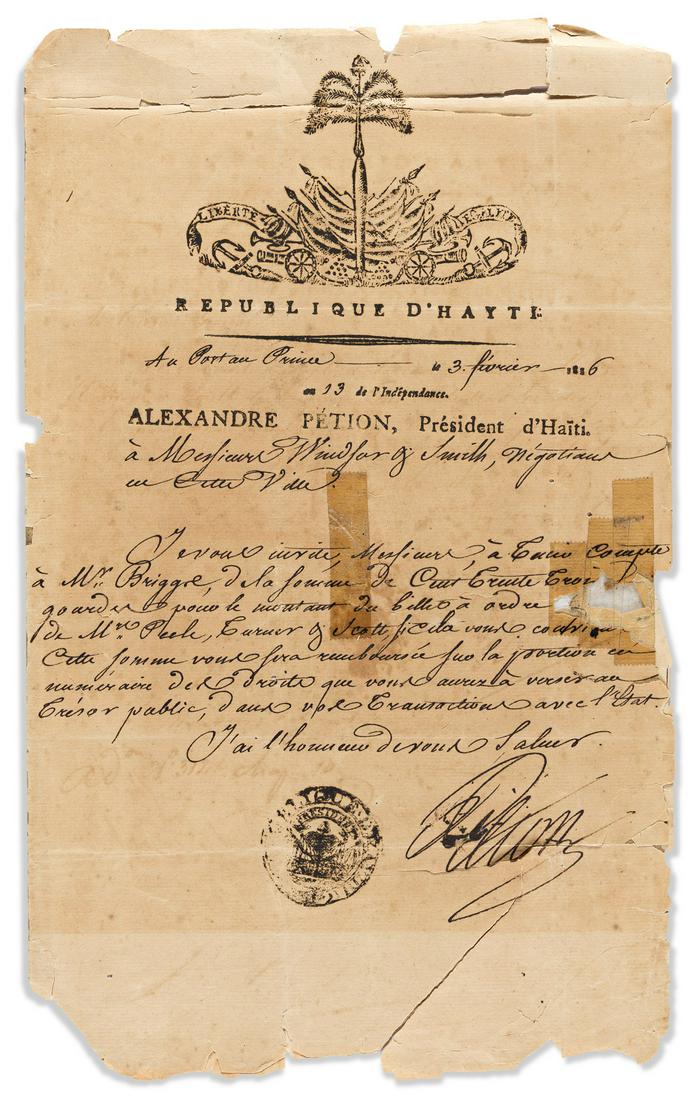 LIBERTÉ
EGALITÉ
REPUBLIQUE D'HAYTI.
Au Port au Prince le 3. février 1816
an 13 de l'Indépendance.
ALEXANDRE PÉTION, Président d'Haïti.
à Messieurs Windsor & Smith, Négotians
en Cette Ville.
Je vous invite, Messieurs, à tenir compte
à Mr. Briggs, de la somme de Cent trente trois
gourdes pour le montant du billet à ordre
de Mrs. Peele, Turner & Scott, si cela vous convien
Cette somme vous sera remboursée sur la portion en
numéraire des droits que vous aurez à verser au
Trésor public, dans vos transactions avec l'Etat.
J'ai l'honneur de vous Saluer.
Pétion